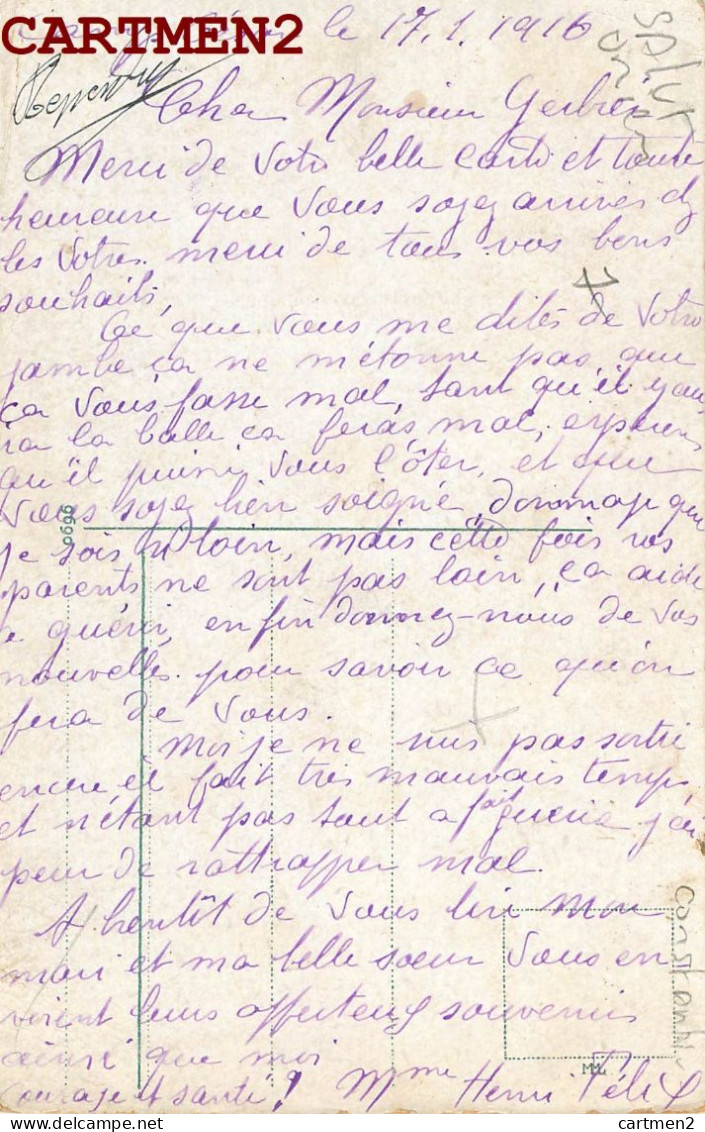 CARTMEN2
le 17.1.1916
Monsieur
Merci de Votre belle carte et toute
heureuse que Vous soyez arrivés
les Votres. merci de tous vos bons
souhaits,
Ce que Vous me dites de Votre
jambe ça ne m'étonne pas, que
ça Vous fasse mal, tant qu'il y au
ra la balle ça feras mal,
qu'il Vous l'ôter, et que
Vous soyez bien soigné, dommage que
je sois si loin, mais cette fois vos
parents ne sont pas loin, ça aide
a guérir, enfin donnez-nous de Vos
nouvelles pour savoir ce qu'on
fera de Vous.
Moi je ne suis pas sortie
encore, il fait très mauvais temps,
et n'étant pas tout a fait guérie j'ai
peur de rattrapper mal.
A bientôt de Vous lire Mon
mari et ma belle sœur Vous en
voient leurs affectueux souvenirs
ainsi que moi
courage et santé! Mme Henri Félix
9690
www.cartmen2.com